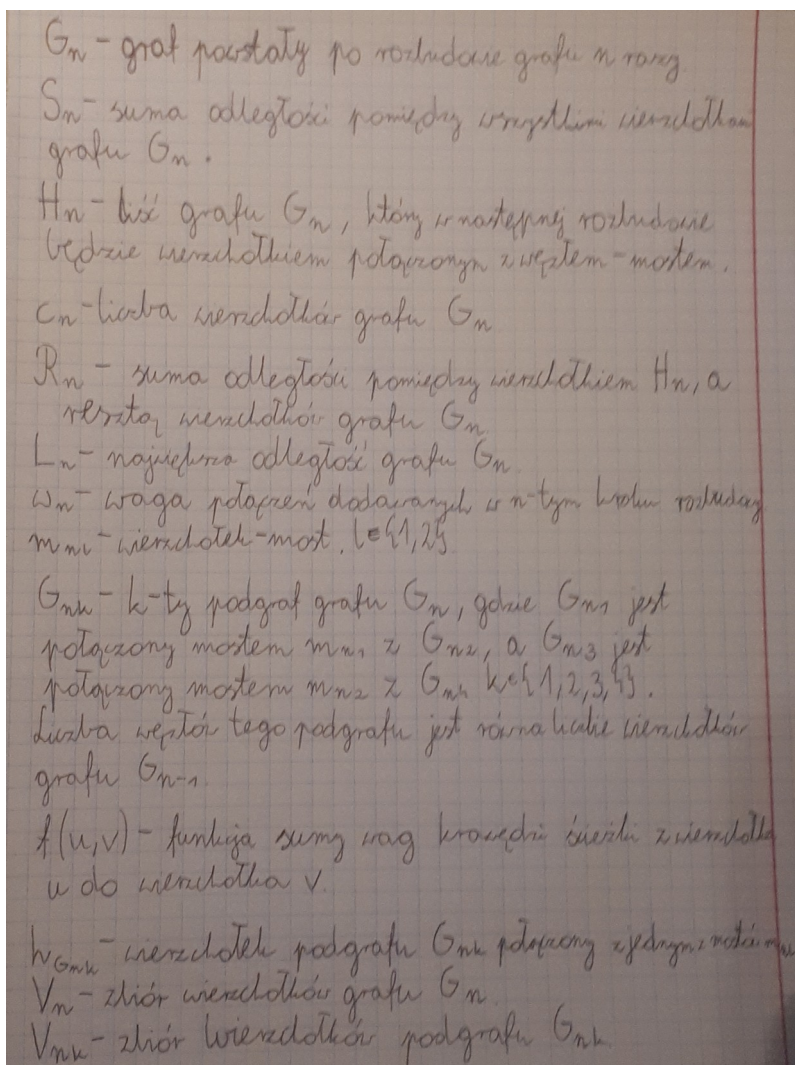 Gn - graf powstały po rozbudowie grafu n razy
Sn - suma odległości pomiędzy wszystkimi wierzchołkami
grafu Gn.
Hn - liść grafu Gn, który w następnej rozbudowie
będzie wierzchołkiem połączonym z węzłem-mostem.
cn - liczba wierzchołków grafu Gn
Rn - suma odległości pomiędzy wierzchołkiem Hn, a
resztą wierzchołków grafu Gn
Ln - największa odległość grafu Gn
ωn - waga połączeń dodawanych w n-tym kroku rozbudowy
mnl - wierzchołek-most. l∈{1,2}
Gnk - k-ty podgraf grafu Gn, gdzie Gn1 jest
połączony mostem mn1 z Gn2, a Gn3 jest
połączony mostem mn2 z Gn4 k∈{1,2,3,4}.
Liczba węzłów tego podgrafu jest równa liczbie wierzchołków
grafu Gn-1
f(u,v) - funkcja sumy wag krawędzi ścieżki z wierzchołka
u do wierzchołka v
hGnk - wierzchołek podgrafu Gnk połączony z jednym z mostów
Vn - zbiór wierzchołków grafu Gn
Vnk - zbiór wierzchołków podgrafu Gnk